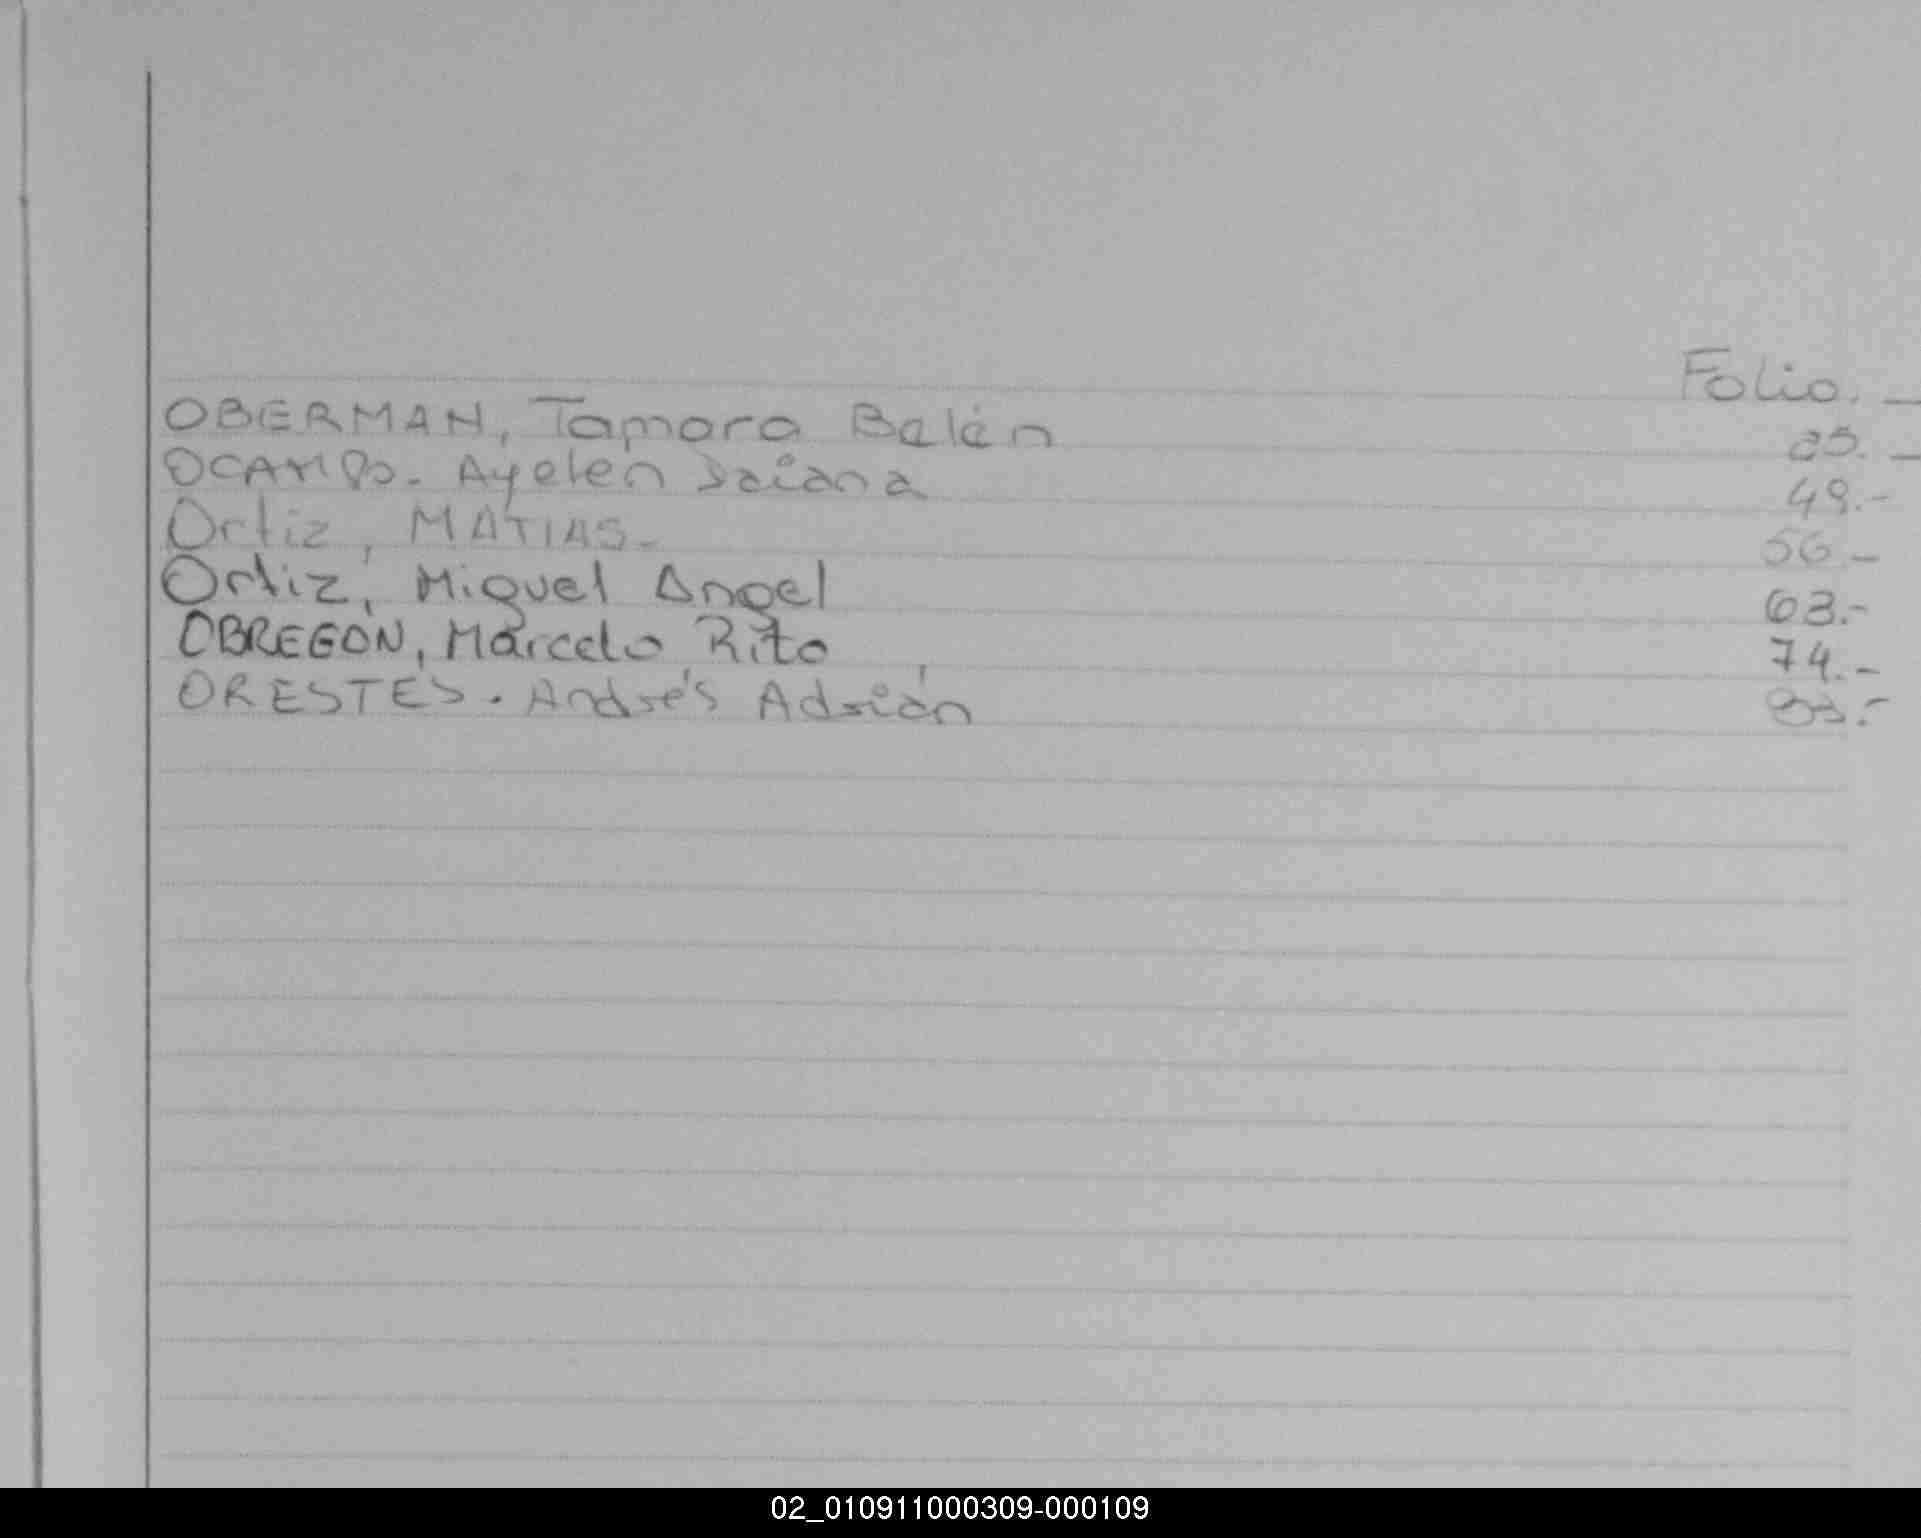 Folio. _
OBERMAN, Tamara Belén 25. _
OCAMPO. Ayelen Daiana 49.-
Ortiz, MATIAS- 56.-
Ortiz, Miguel Angel 63.-
OBREGON, Marcelo Rito 74.-
ORESTES. Andrés Adrián
02_010911000309-000109